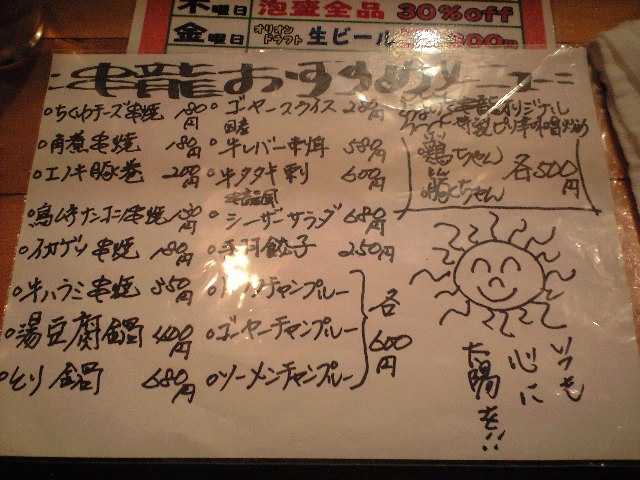 木曜日 泡盛全品 30%off
金曜日 オリオンドラフト 生ビール
串龍おすすめメニュー
ちくわチーズ串焼 180円
角煮串焼 180円
エノキ豚巻 200円
串焼
イカゲソ串焼 180円
牛ハラミ串焼 350円
湯豆腐鍋 400円
とり鍋 680円
ゴーヤースライス
国産
牛レバー串 580円
牛タタキ刺 600円
シーザーサラダ 680円
手羽餃子 250円
チャンプルー
ゴーヤーチャンプルー
ソーメンチャンプルー
各600円
オリジナル
鶏ちゃん
豚ちゃん
各500円
いつも
心に
太陽を!!